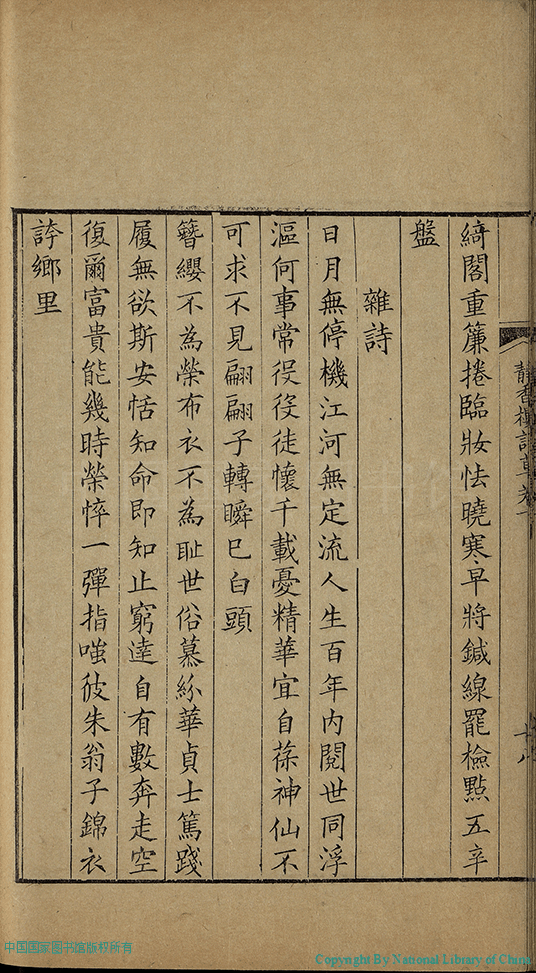 綺閣重簾捲臨妝怯曉寒早將鍼線罷檢點五辛
盤
雜詩
日月無停機江河無定流人生百年內閱世同浮
漚何事常役役徒懷千載憂精華宜自葆神仙不
可求不見翩翩子轉瞬已白頭
簪纓不為榮布衣不為恥世俗慕紛華貞士篤踐
履無欲斯安恬知命即知止窮達自有數奔走空
復爾富貴能幾時榮悴一彈指嗤彼朱翁子錦衣
誇鄉里
中国国家图书馆版权所有
Copyright By National Library of China